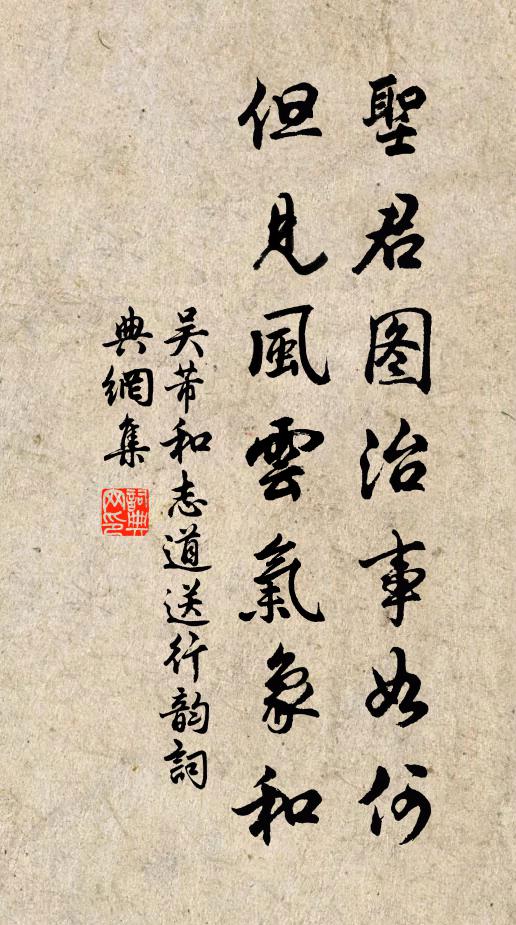 聖君图治事如何
但見風雲氣象和
吴芾和志道送行韵詞
典網集
詞典
网印